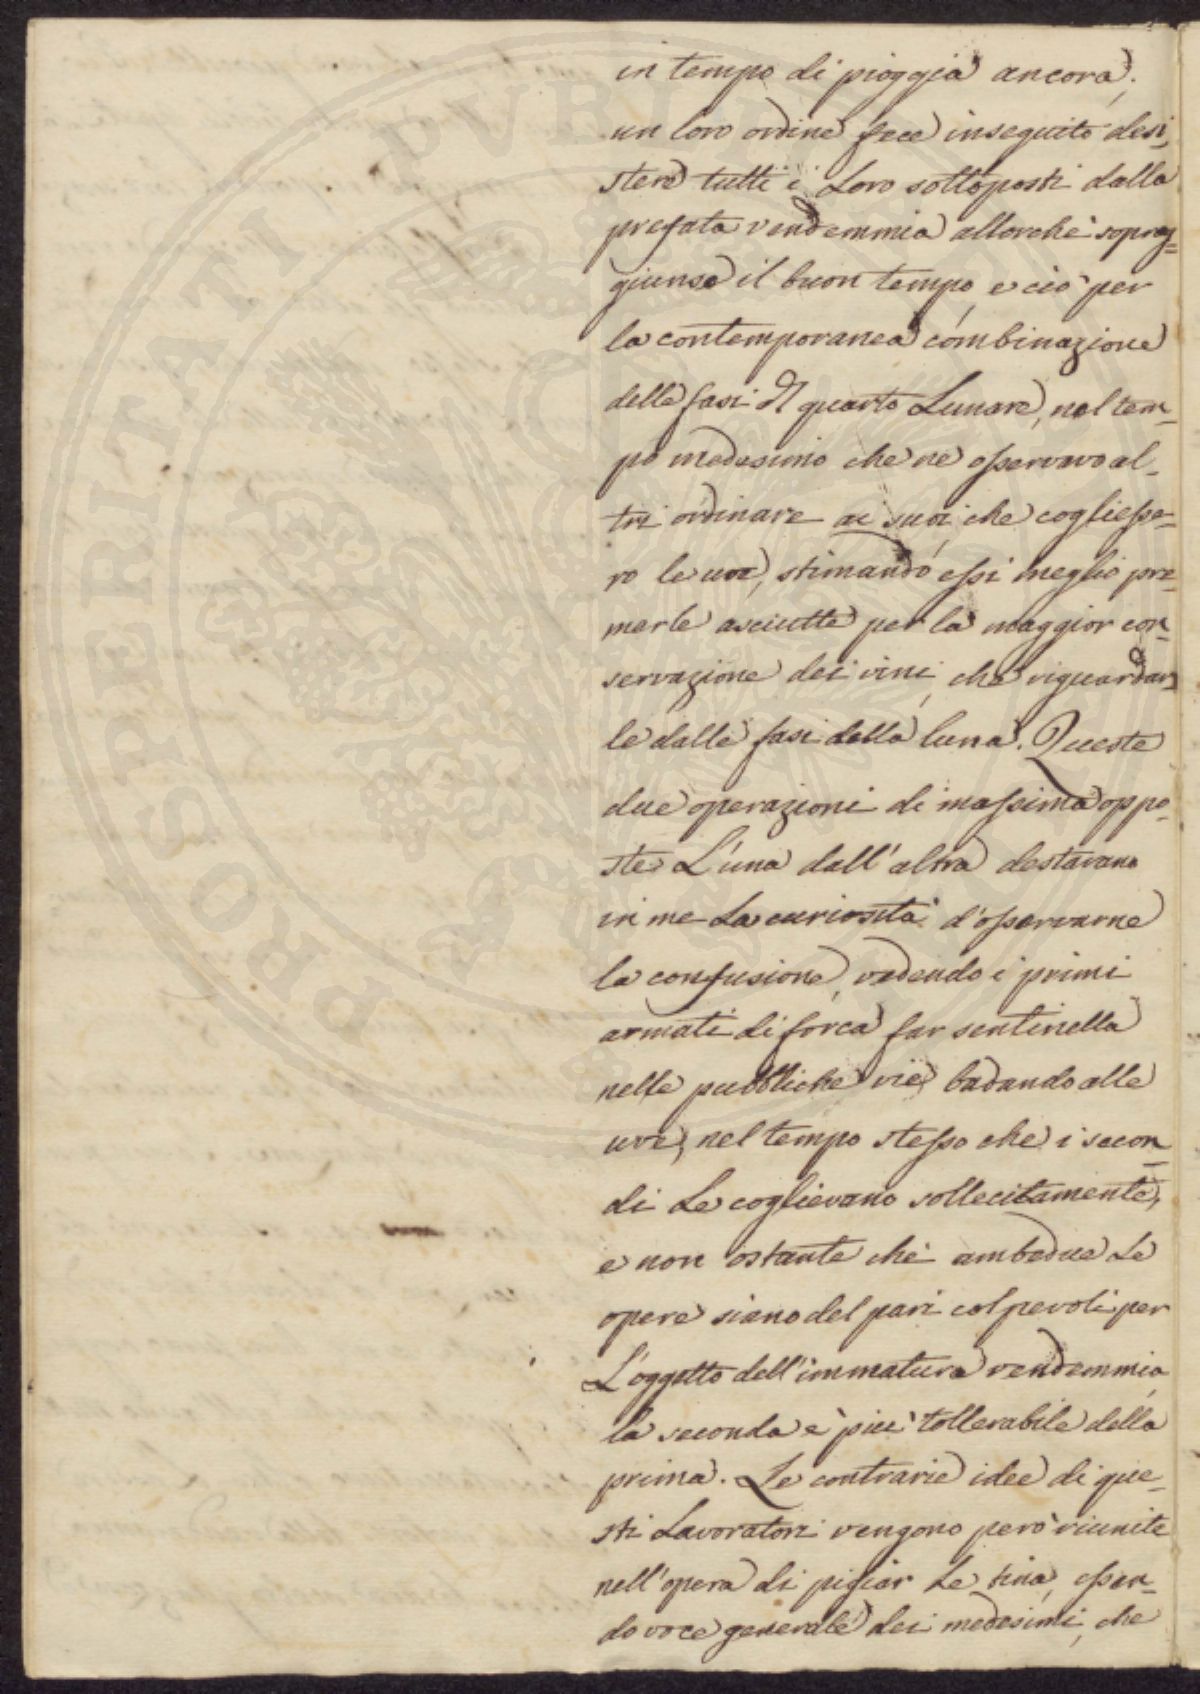 in tempo di pioggia ancora;
un loro ordine fece inseguito desi,
stere tutti i Loro sottoposti dalla
prefata vendemmia allorchè soprag=
giunse il buon tempo, e ciò per
la contemporanea combinazione
delle fasi del quarto Lunare, nel tem-
po medesimo che ne osservavo al-
tri ordinare ai suoi che cogliesse-
ro le uve, stimando essi meglio pre-
merle asciutte per la maggior con-
servazione dei vini, che riguardar-
le dalle fasi della luna. Queste
due operazioni di massima oppo-
ste L'una dall'altra destavano
in me La curiosità d'osservarne
la confusione, vedendo i primi
armati di forca far sentinella
nelle pubbliche vie, badando alle
uve, nel tempo stesso che i secon-
di Le coglievano sollecitamente,
e non ostante che ambedue Le
opere siano del pari colpevoli per
L'oggetto dell'immatura vendemmia,
la seconda è più tollerabile della
prima. Le contrarie idee di que-
sti Lavoratori vengono però riunite
nell'opera di pigiar Le tina, essen-
do voce generale dei medesimi, che
PROSPERITATI PUBLICAE